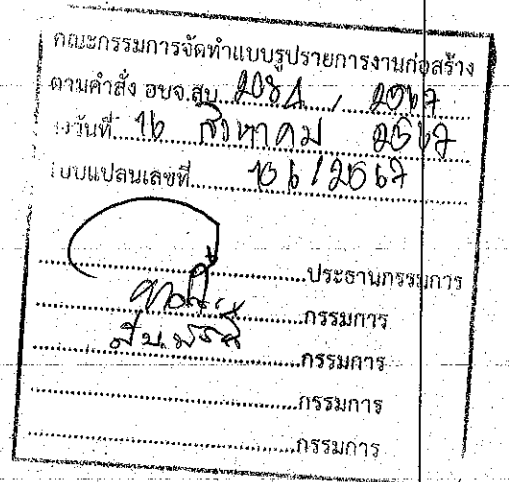 คณะกรรมการจัดทำแบบรูปรายการงานก่อสร้าง
ตามคำสั่ง อบจ.สบ. 2084 / 2567
ลงวันที่ 16 สิงหาคม 2567
แบบแปลนเลขที่ 106/2567
ประธานกรรมการ
กรรมการ
กรรมการ
กรรมการ
กรรมการ